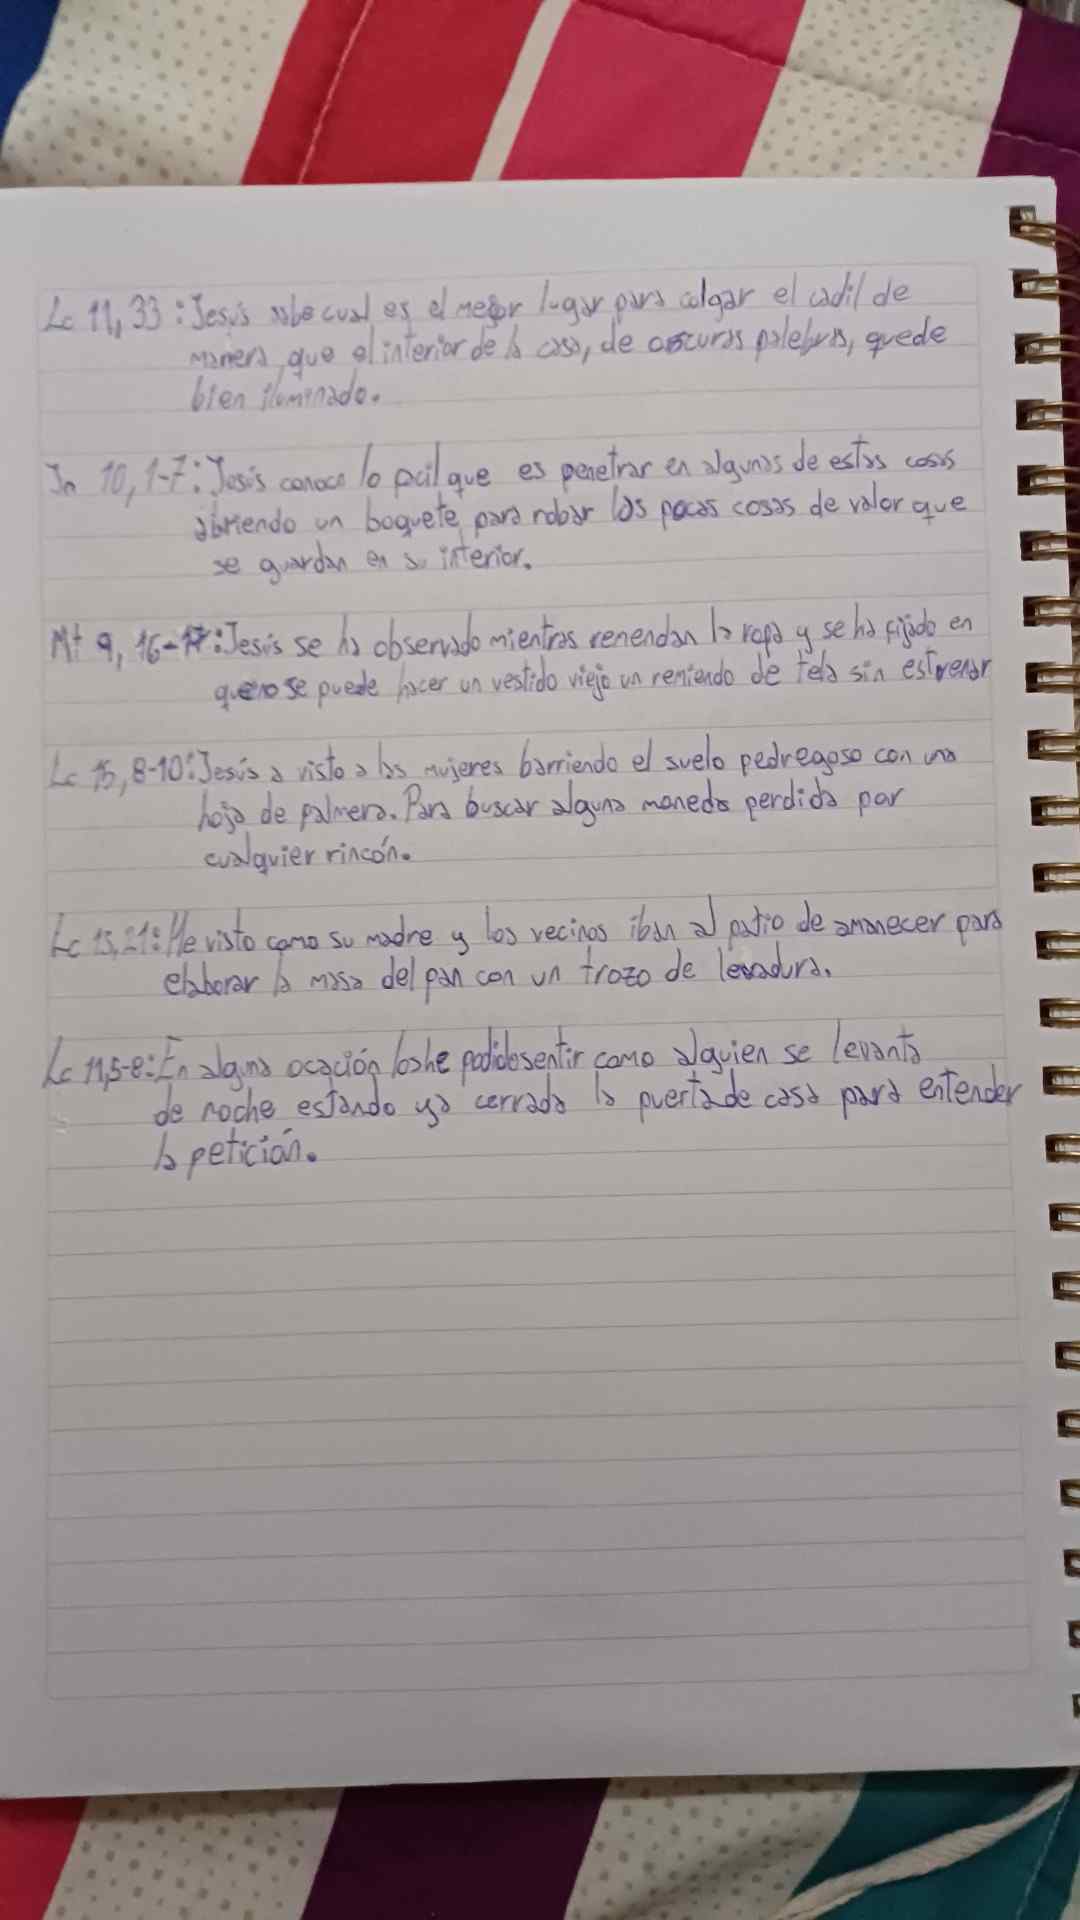 Lc 11, 33: Jesús sabe cual es el mejor lugar para colgar el cadil de
manera que el interior de la casa, de oscuras palebras, quede
bien iluminado.
Jn 10, 1-7: Jesús conoce lo fácil que es penetrar en algunas de estas casas
abriendo un boquete para robar las pocas cosas de valor que
se guardan en su interior.
Mt 9, 16-17: Jesús se ha observado mientras remendan la ropa y se ha fijado en
que no se puede hacer un vestido viejo un remiendo de tela sin estrenar
Lc 15, 8-10: Jesús a visto a las mujeres barriendo el suelo pedregoso con una
hoja de palmera. Para buscar alguna moneda perdida por
cualquier rincón.
Lc 13, 21: He visto como su madre y los vecinos iban al patio de amanecer para
elaborar la masa del pan con un trozo de levadura.
Lc 11,5-8: En alguna ocación los he podido sentir como alguien se levanta
de noche estando ya cerrada la puerta de casa para entender
la petición.